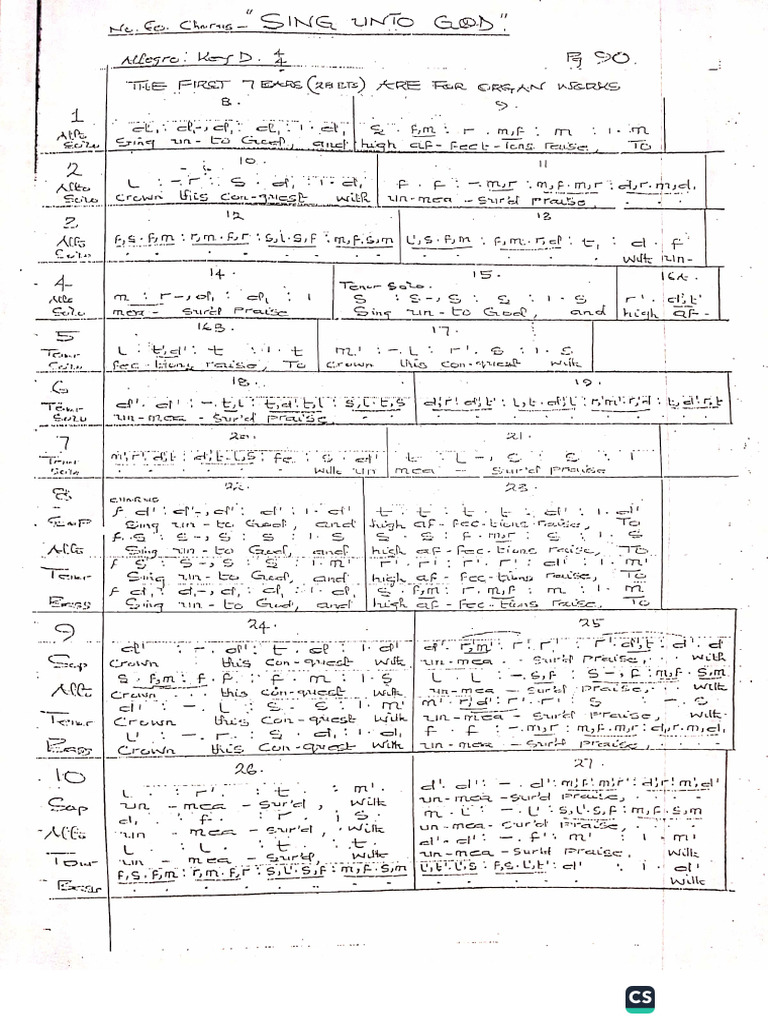 No. 60. Chorus - "SING UNTO GOD"
Allegro: Key D. 4/4 Pg 90.
THE FIRST 7 BARS (28 BTS) ARE FOR ORGAN WORKS
8. 9.
1 d, : d,-, d, : d, : 1 . d, S . f,m : r . m,f : m : 1 . m
Alto Solo Sing un-to God, and high af-fect-ions raise, To
10. 11
2 L : - . r : S . d, : 1 . d, f . f : - . m,r : m,f . m,r : d,r . m,d,
Alto Solo crown this con-quest with un-mea-sur'd praise,
12 13
3 f,s . f,m : r,m . f,r : s,l . s,f : m,f . s,m l,s . f,m : f,m . r,d : t, : d . f
Alto Solo with un-
14. 15. 16A.
4 m : r-, d, : d, : 1 Tenor Solo. S : S-, S : S : 1 . S r' . d',t'
Alto Solo mea-sur'd praise Sing un-to God, and high af-
16B. 17.
5 L : t,d' : t : 1 . t m' : - . L : r' . S : 1 . S
Tenor Solo fec-tions raise, To crown this con-quest with
18. 19.
6 d' . d' : - . t,l : t,d' . t,l : s,l . t,s d',r' . d',t : l,t . d',l : r',m' . r',d' : t,d' . r',t
Tenor Solo un-mea-sur'd praise
20. 21.
7 m',r' . d',t : d',t . l,s : fe : s . d' t : L-, S : S : 1
Tenor Solo with un mea-sur'd praise
22 23.
8 CHORUS
f d' : d'-, d' : d' : 1 . d' t . t : t . t : d' : 1 . d'
Sop Sing un-to God, and high af-fec-tions raise, To
f S : S-, S : S : 1 . S S . S : f . m,r : S : 1 . S
Alto Sing un-to God, and high af-fec-tions raise, To
f S : S-, S : S : 1 . m' r' . r' : r' . r' : d' : 1 . m'
Tenor Sing un-to God, and high af-fec-tions raise, To
f d, : d,-, d, : d, : 1 . d, S . f,m : r . m,f : m : 1 . m
Bass Sing un-to God, and high af-fec-tions raise, To
9 24. 25
d' : - . d' : t . d' : 1 . d' d' . r',m' : r' . r' : r' . d',t : d' . d'
Sop Crown this con-quest with un-mea-sur'd praise, with
S . f,m : f . f : f . m : 1 . S L . L : - . s,f : S-, f : m,f . s,m
Alto Crown this con-quest with un-mea-sur'd praise, with
d' : - . L : S . S : 1 . m' m' . r',d' : r' . r' : S : - . S
Tenor Crown this con-quest with un-mea-sur'd praise, with
L' : - . r : S . d, : 1 . d, f . f : - . m,r : m,f . m,r : d,r . m,d,
Bass Crown this con-quest with un-mea-sur'd praise,
10 26. 27
L : r' : t : m' d' . d' : - . d' : m',f' . m',r' : d',r' . m',d'
Sop un-mea-sur'd, with un-mea-sur'd praise,
d, : f : r : S m . L' : - . L' : s,l' . s,f : m,f . s,m
Alto un-mea-sur'd, with un-mea-sur'd praise,
L : L : t : t d' . d' : - . f' : m' : 1 . m'
Tour un-mea-sur'd, with un-mea-sur'd praise, with
f,s . f,m : r,m . f,r : s,l' . s,f : m,f . s,m l',t' . l',s : f,s . l',t' : d' : 1 . d'
Bass with
CS